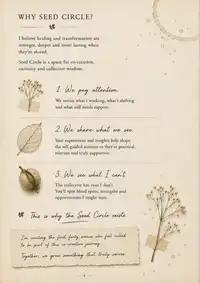 WHY SEED CIRCLE?
I believe healing and transformation are
stronger, deeper and more lasting when
they're shared.
Seed Circle is a space for co-creation,
curiosity and collective wisdom.
1. We pay attention
We notice what's working, what's shifting
and what still needs support.
2. We share what we see
Your experiences and insights help shape
the self guided sessions so they're practical,
relevant and truly supportive.
3. We see what I can't
The collective has eyes I don't.
You'll spot blind spots, strengths and
opportunities I might miss.
This is why the Seed Circle exists
I'm inviting the first forty women who feel called
to be part of this co-creative journey.
Together, we grow something that truly serves